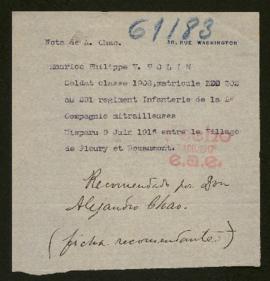 61/83
Nota de A. Chao.
30, RUE WASHINGTON
Maurice Philippe V. SOLIN
Soldat classe 1908, matricule 202
au 291 regiment Infanterie de la 2e
Compagnie mitrailleuses
Disparu 9 Juin 1916 entre le Village
de Fleury et Douaumont.
e.a.e.
Recomendado por Don
Alejandro Chao.
(ficha recomendante)